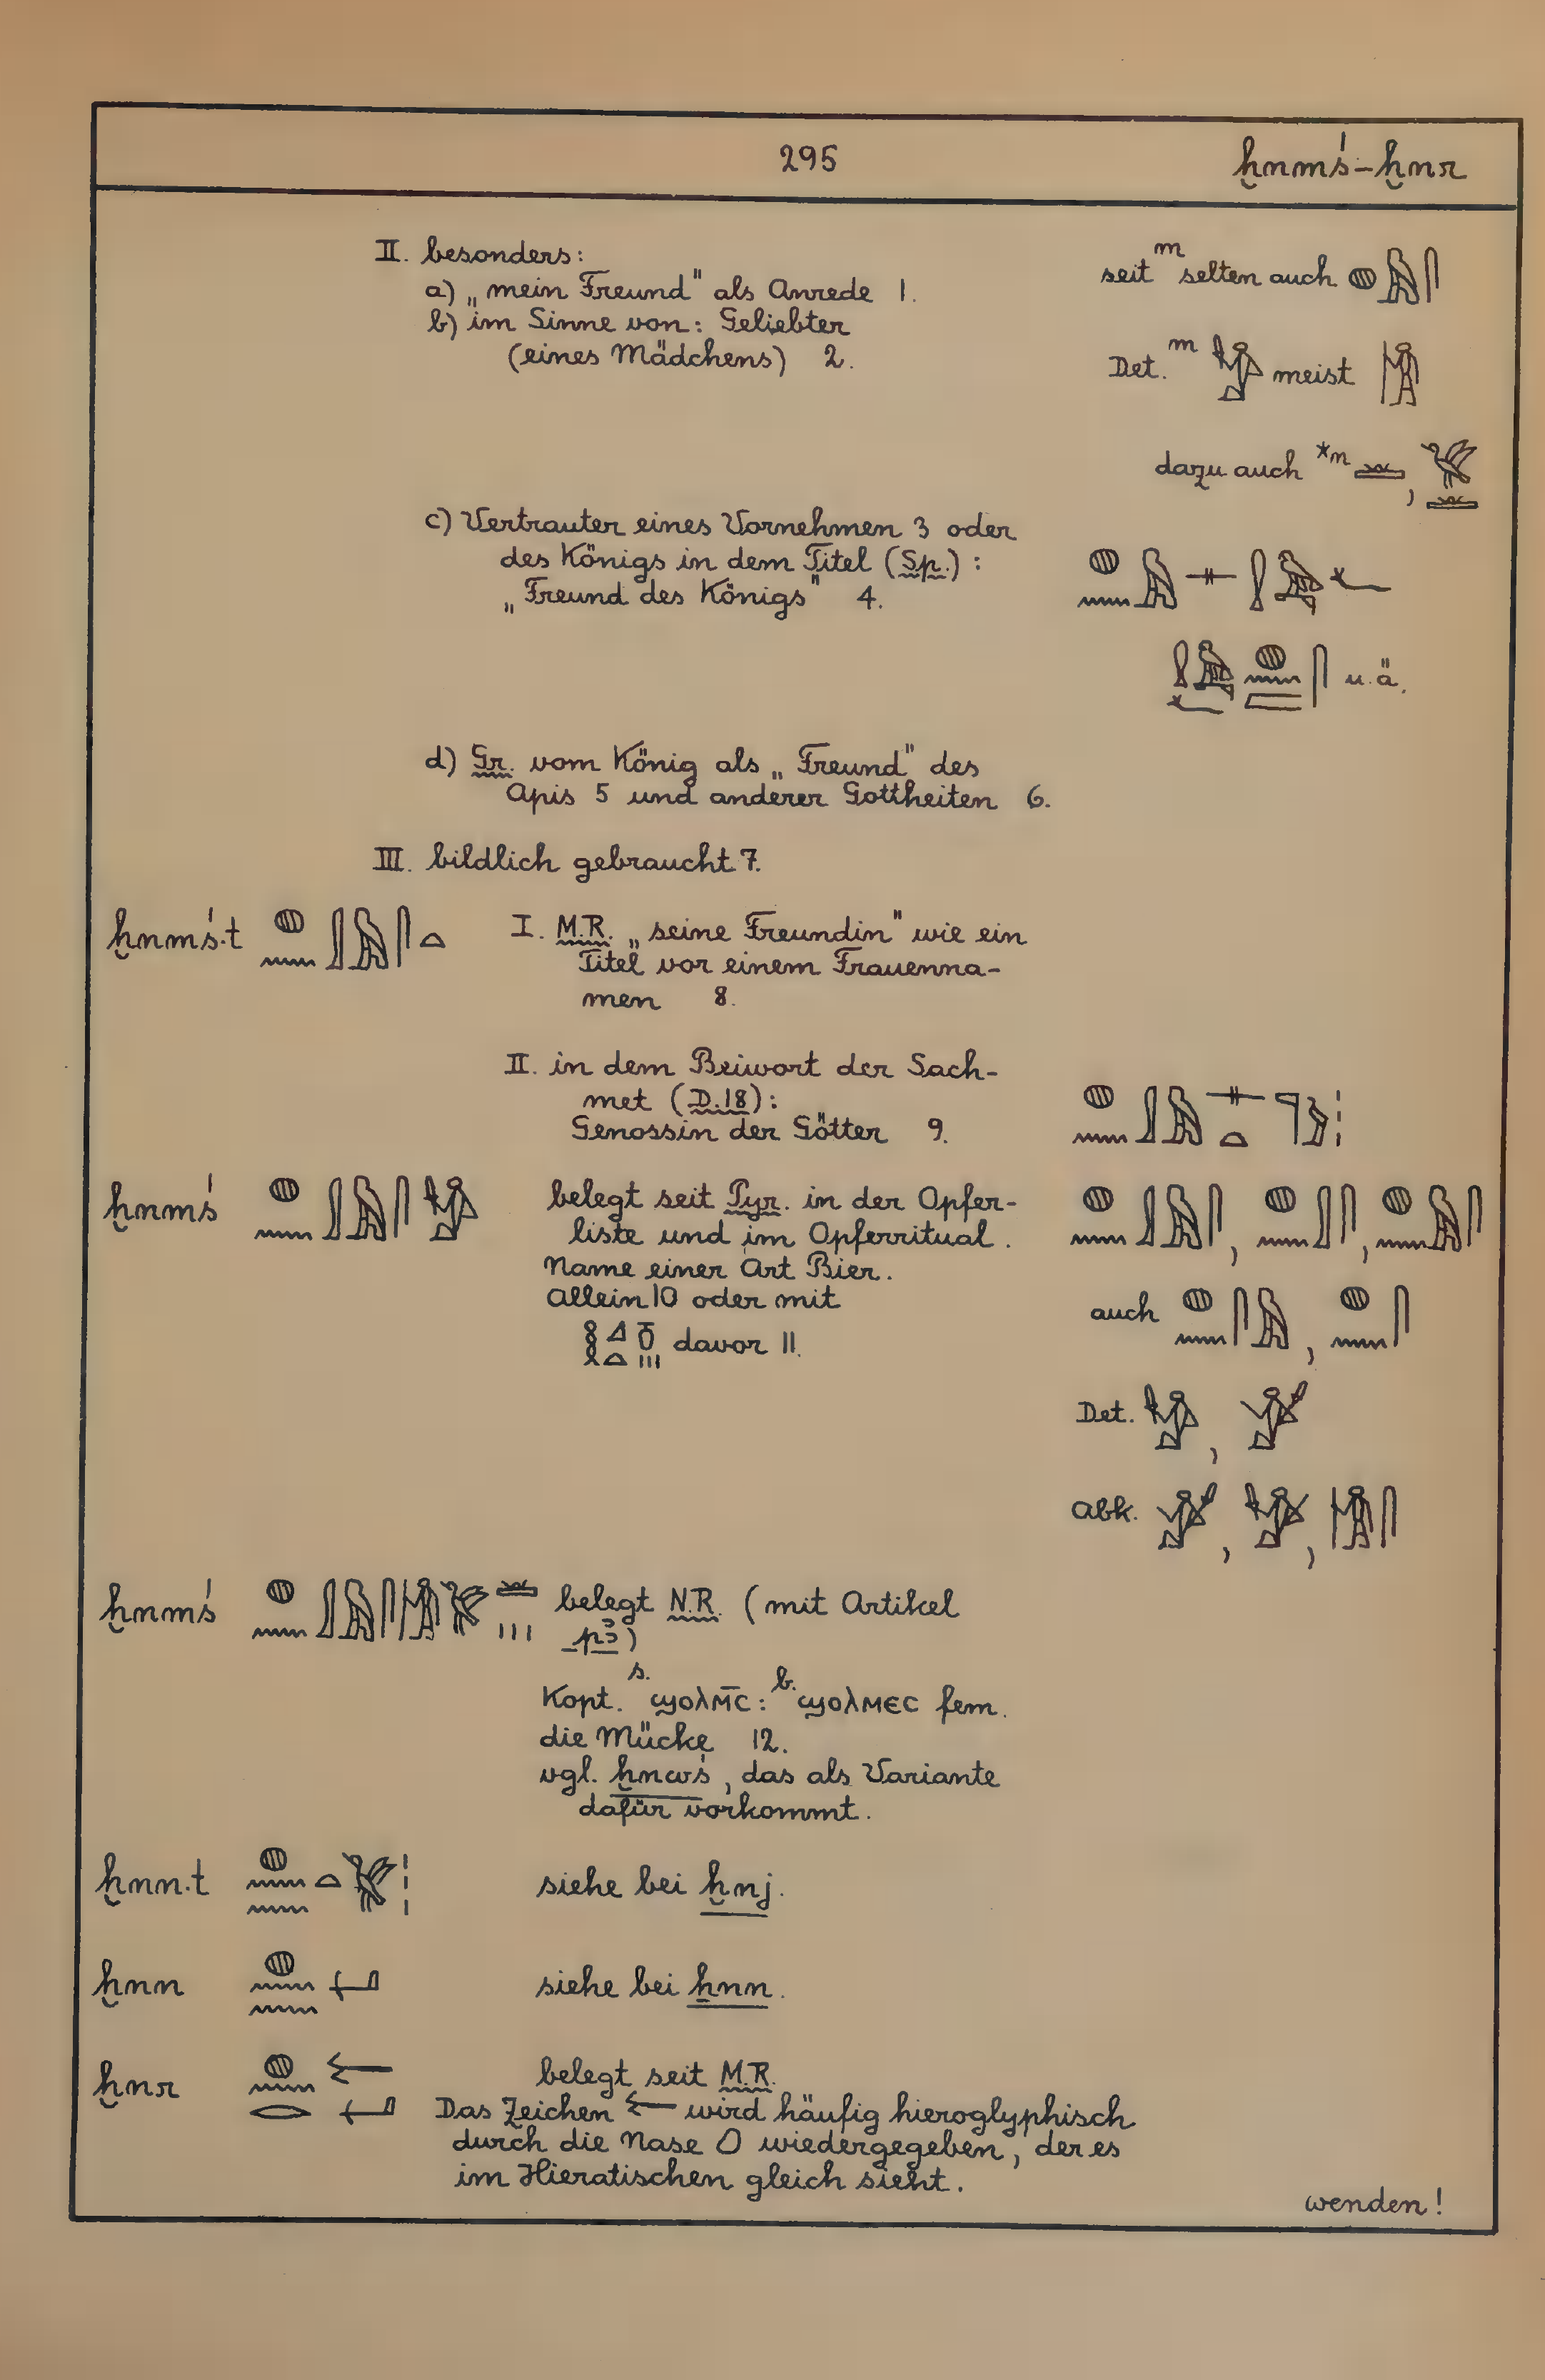 295 ḫnmś-ḫnr
II. besonders:
a) „mein Freund" als Anrede 1.
b) im Sinne von: Geliebter
(eines Mädchens) 2.
seit m selten auch
Det. m meist
dazu auch *m ,
c) Vertrauter eines Vornehmen 3 oder
des Königs in dem Titel (Sp.):
„Freund des Königs" 4.
u.ä.
d) Gr. vom König als „Freund" des
Apis 5 und anderer Gottheiten 6.
III. bildlich gebraucht 7.
ḫnmś.t I. M.R. „seine Freundin" wie ein
Titel vor einem Frauenna-
men 8.
II. in dem Beiwort der Sach-
met (D.18):
Genossin der Götter 9.
ḫnmś belegt seit Pyr. in der Opfer-
liste und im Opferritual.
Name einer Art Bier.
Allein 10 oder mit
davor 11.
auch
Det. ,
Abk. , ,
ḫnmś belegt N.R. (mit Artikel
pꜣ)
Kopt. s. ϣⲟⲗⲙ̅ⲥ : b. ϣⲟⲗⲙⲉⲥ fem.
die Mücke 12.
vgl. ḫnwś, das als Variante
dafür vorkommt.
ḫnn.t siehe bei ḫnj.
ḫnn siehe bei ẖnn.
ḫnr belegt seit M.R.
Das Zeichen wird häufig hieroglyphisch
durch die Nase wiedergegeben, der es
im Hieratischen gleich sieht.
wenden!